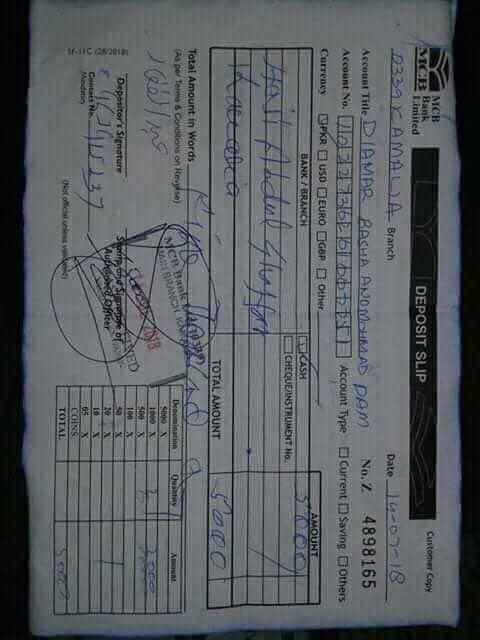 Customer Copy
MCB
MCB
Bank
Limited
DEPOSIT SLIP
0339 KAMALIA Branch
Date 14-07-18
Account Title DIAMAR BASHA AND MOHMAD DAM
No. Z 4898165
Account No.
Account Type
Current Saving Others
Currency PKR USD EURO GBP Other
CASH
CHEQUE/INSTRUMENT No.
BANK / BRANCH
AMOUNT
Haji Abdul Ghaffar
5000
Kamalia
TOTAL AMOUNT
5000
Total Amount in Words
(As per Terms & Conditions on Reverse)
Five Thousand
MCB Bank
MAIN BRANCH
2018
Depositor's Signature
Contact No.
Mandatory
Stamp and Signature of
Authorized Officer
(Not official unless validated)
Denomination Quantity Amount
5000 X
1000 X
500 X
100 X
50 X
20 X
10 X
05 X
COINS
TOTAL 5000
SF-11C (28/2018)